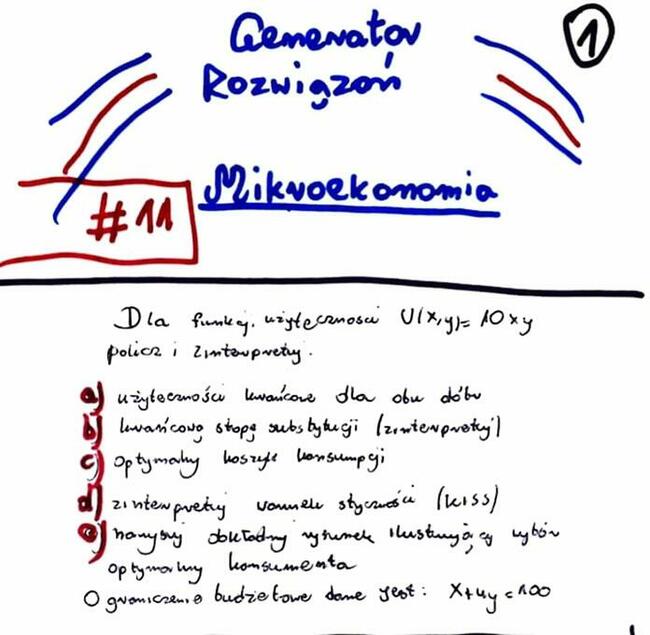 Generator
1
Rozwiązań
Mikroekonomia
#11
Dla funkcji użyteczności U(x,y)=10xy
policz i zinterpretuj.
a) użyteczności krańcowe dla obu dóbr
b) krańcową stopę substytucji (zinterpretuj)
c) optymalny koszyk konsumpcji
d) zinterpretuj warunek styczności (KISS)
e) narysuj dokładny rysunek ilustrujący wybór
optymalny konsumenta
Ograniczenie budżetowe dane jest: x+4y=100